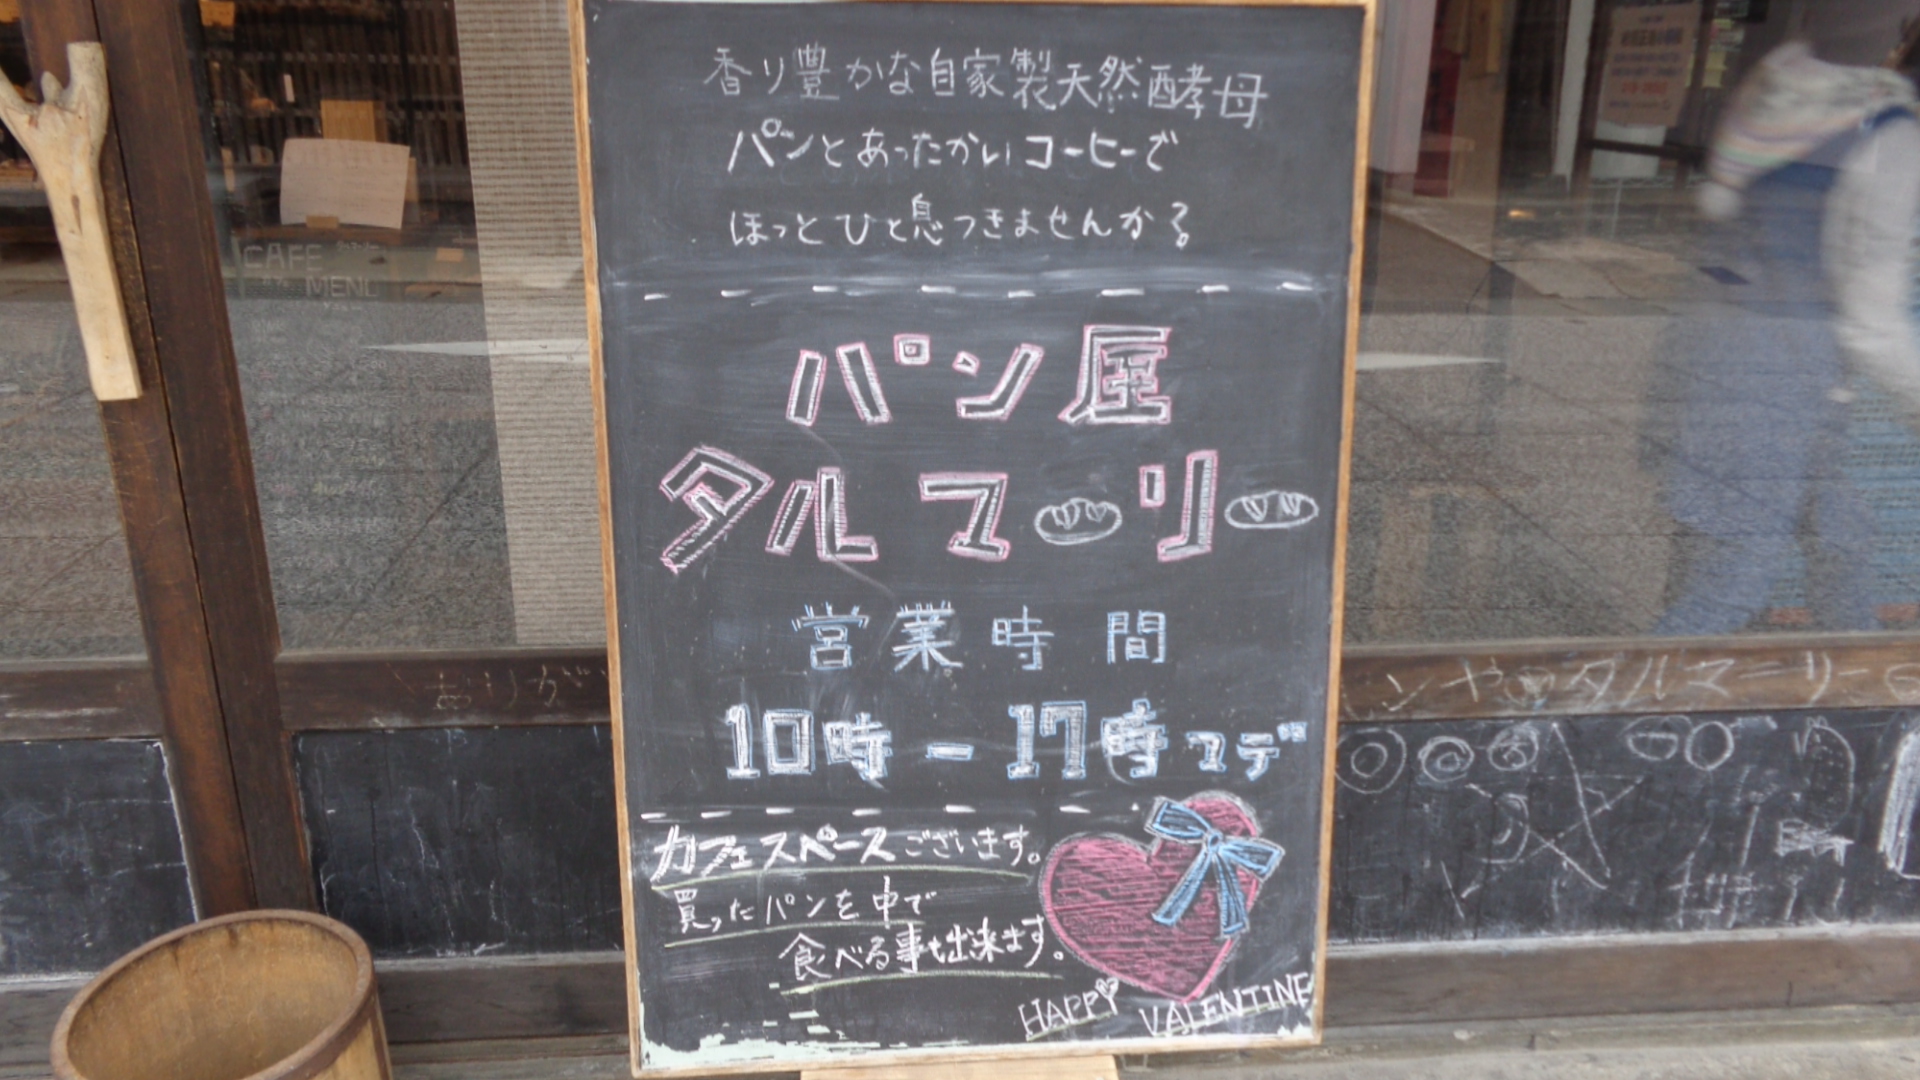 香り豊かな自家製天然酵母
パンとあったかいコーヒーで
ほっとひと息つきませんか?
パン屋
タルマーリー
営業時間
10時-17時マデ
カフェスペースございます。
買ったパンを中で
食べる事も出来ます。
HAPPY VALENTINE
CAFE
MENU
ンやのタルマーリー